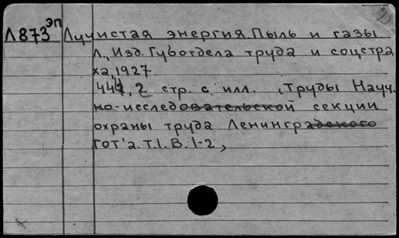 Л873 ЭП Лучистая энергия Пыль и газы
Л., Изд. Губотдела труда и соцстра
ха, 1927.
444, 2 стр. с илл. (Труды Науч.
но-исследовательской секции
охраны труда Ленинградского
ГОТ'а. Т.I. В. I-2,